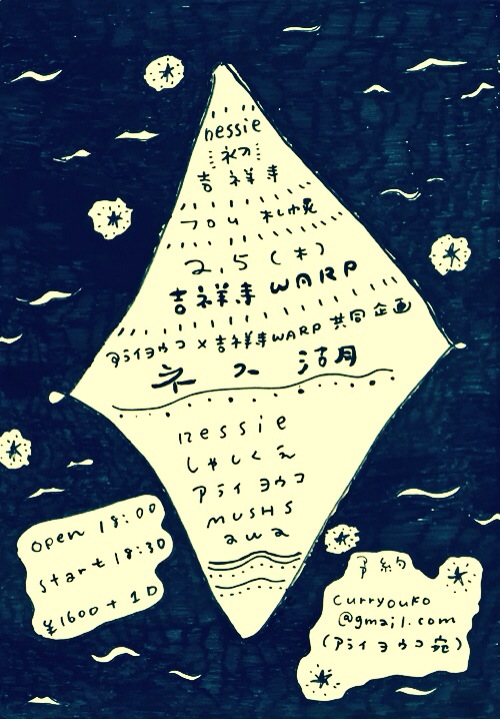 nessie
初
吉祥寺
フロム 札幌
2.5 (木)
吉祥寺 WARP
アライヨウコ × 吉祥寺WARP 共同企画
nessie
しゃしくえ
アライヨウコ
MUSHS
awa
open 18:00
start 18:30
¥1600 + 1D
予約
curryouko
@gmail.com
(アライヨウコ宛)